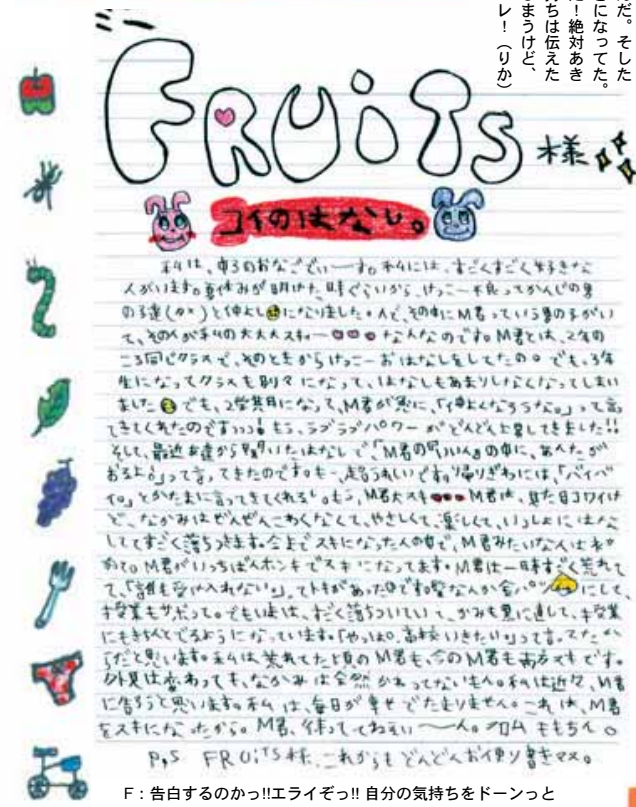 だ。そした
になってた。
だ！絶対あき
ちは伝えた
まうけど、
レ！（りか）
FRUiTS 様
コイのはなし。
私は、中3のおなごでぃーす。私には、すごくすごく好きな
人がいます。夏休みが明けた時ぐらいから、けっこー不良ってかんじの男
の子達(タメ)と仲よしになりました。んで、その中にM君っていう男の子がい
て、その人が私の大大大スキーな人なのです。M君とは、2年の
ころ同じクラスで、そのときからけっこーおはなしをしてたの。でも、3年
生になってクラスも別々になって、はなしもあまりしなくなってしまい
ました でも、2学期になって、M君が急に、「仲よくなろうな。」って言っ
てきてくれのですっっ！もう、ラブラブパワーがどんどん上昇してきました!!
そして、最近友達から聞いたはなしで、「M君の好いい人の中に、あんたが
おるよ。」って言ってきたのです。も一、超うれしいです。帰りぎわには、「バイバ
イ。」とかたまに言ってきてくれるし。もう、M君大スキ M君は、見た目コワイけ
ど、なかみはぜんぜんこわくなくて、やさしくて、楽しくて、いっしょにはなし
しててすごく落ちつきます。今までスキになった人の中で、M君みたいな人は
初めて。M君がいっちばんホンキでスキになってます。M君は一時すごく荒れて
て、「誰も受け入れない。」ってトキがあったのです。髪なんか金パツにして、
授業もサボって。でも今は、すごく落ちついていて、かみも黒に直して、授業
にもきちんとでるようになっています。「やっぱ。高校いきたい。」って言ってたか
らだと思います。私は、荒れてた頃のM君も、今のM君も両方スキです。
外見は変わっても、なかみは全然かわってないもん。私は近々、M君
に告ろうと思います。私は、毎日が幸せでたまりません。これは、M君
をスキになったから。M君、待っててねえい〜ん。 ももちん
P.S FRUiTS様、これからもどんどんお便り書きマス。
F：告白するのかっ!!エライぞっ!! 自分の気持ちをドーンっと